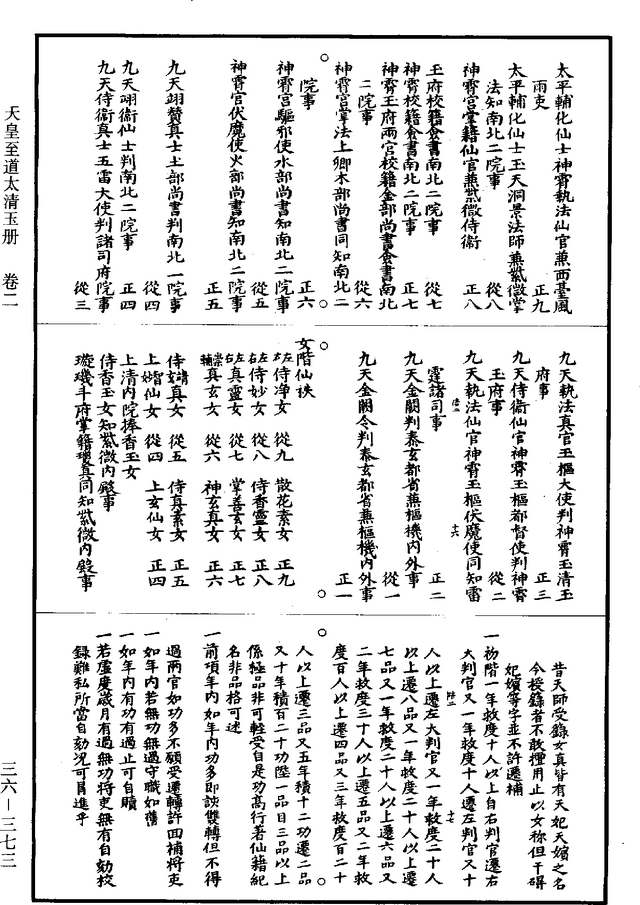 天皇至道太清玉册　卷二
三六—三七三
太平輔化仙士神霄執法仙官兼西臺風
雨吏　正九
太平輔化仙士玉天洞景法師兼紫微掌
法知南北二院事　從八
神霄宮掌籍仙官兼紫微侍衛　正八
王府校籍僉書南北二院事　從七
神霄校籍僉書南北二院事　正七
神霄王府兩宮校籍金部尚書僉書南北
二院事　從六
神霄宮掌法上卿木部尚書同知南北二
院事　正六
神霄宮驅邪使水部尚書知南北二院事　從五
神霄宮伏魔使火部尚書知南北二院事　正五
九天翊贊真士土部尚書判南北一院事　從四
九天翊衛仙士判南北二院事　正四
九天侍衛真士五雷大使判諸司府院事　從三
九天執法真官玉樞大使判神霄玉清玉
府事　正三
九天侍衛仙官神霄玉樞都督使判神霄
玉府事　從二
九天執法仙官神霄玉樞伏魔使同知雷
霆諸司事　正二
九天金闕判泰玄都省兼樞機內外事　從一
九天金闕令判泰玄都省兼樞機內外事　正一
女階仙秩
左右侍净女　從九　散花素女　正九
左右侍妙女　從八　侍香靈女　正八
左右真靈女　從七　掌善玄女　正七
崇輔真玄女　從六　神玄真女　正六
侍靖玄真女　從五　侍真素女　正五
上嬪仙女　從四　上玄仙女　正四
上清內院捧香玉女
侍香玉女知紫微內殿事
璇璣斗府掌籍瓊真同知紫微內殿事
昔天師受籙女真皆有天妃天嬪之名
今授籙者不敢擅用止以女稱但干碍
妃嬪等字並不許遷補
一初階一年救度十人以上自右判官遷右
大判官又一年救度十人遷左判官又十
人以上遷左大判官又一年救度二十人
以上遷八品又一年救度二十人以上遷
七品又一年救度二十人以上遷六品又
二年救度三十人以上遷五品又二年救
度百人以上遷四品又三年救度百二十
人以上遷三品又五年積十二功遷二品
又十年積百二十功陞一品目三品以上
係極品非可輕受自是功高行著仙籍紀
名非品格可述
一前項年內如年內功多即該雙轉但不得
過兩官如功多不願受遷轉許回補將吏
一如年內若無功無過守職如舊
一如年內有功有過止可自贖
一若虛度歲月有過無功將吏無有自劾校
録難私所當自劾況可冒進乎